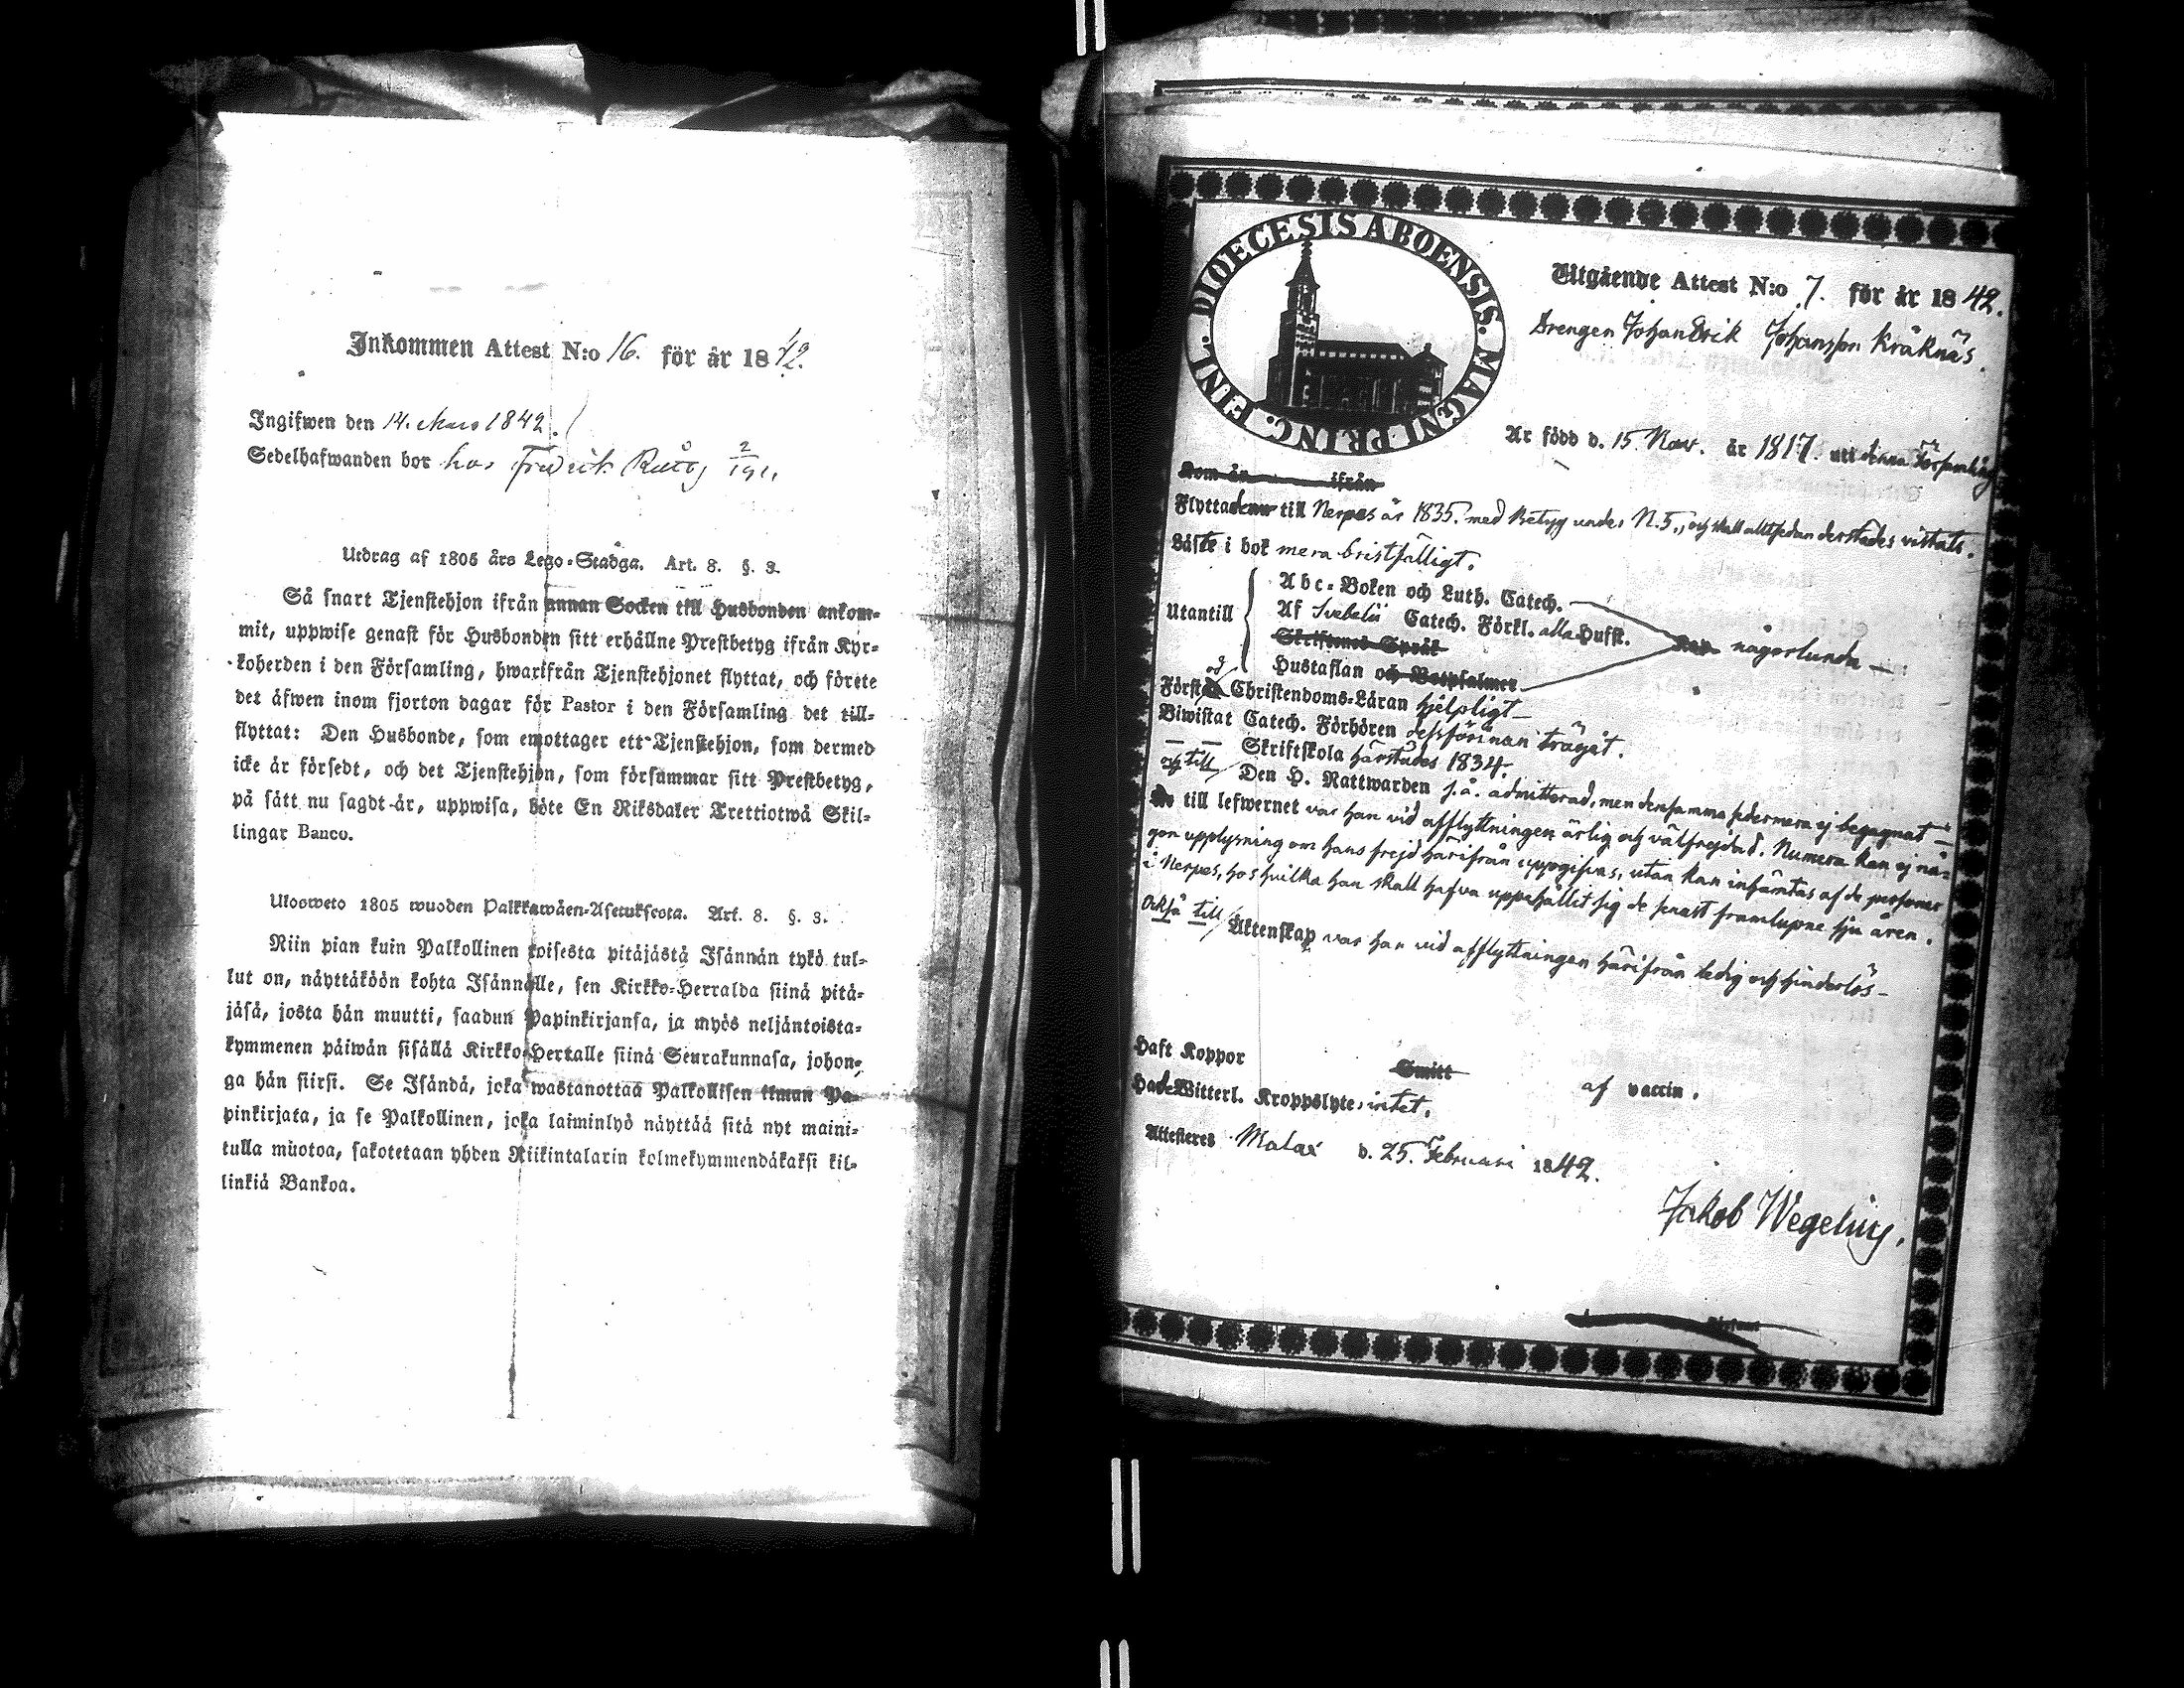 Inkommen Attest N:o 16. för år 1842.
Ingifwen den 14. Mars 1842.
Sedelhafwanden bor hos Fredrik 2/191.
Utdrag af 1805 års Lego-Stadga. Art. 8. §. 3.
Så snart Tjenstehjon ifrån annan Socken till Husbonden ankom-
mit, uppwise genast för Husbonden sitt erhållne Prestbetyg ifrån Kyr-
koherden i den Församling, hwarifrån Tjenstehjonet flyttat, och förete
det äfwen inom fjorton dagar för Pastor i den Församling det till-
flyttat: Den Husbonde, som emottager ett Tjenstehjon, som dermed
icke är försedt, och det Tjenstehjon, som försummar sitt Prestbetyg,
på sätt nu sagdt är, uppwisa, böte En Riksdaler Trettiotwå Skil-
lingar Banco.
Ulosweto 1805 wuoden Palkkawäen-Asetuksesta. Art. 8. §. 3.
Niin pian kuin Palkollinen toisesta pitäjästä Isännän tykö tul-
lut on, näyttäköön kohta Isännälle, sen Kirkko-Herralda siinä pitä-
jäsä, josta hän muutti, saadun Papinkirjansa, ja myös neljäntoista-
kymmenen päiwän sisällä Kirkko-Herralle siinä Seurakunnasa, johon-
ga hän siirsi. Se Isändä, joka wastanottaa Palkollisen ilman Pa-
pinkirjata, ja se Palkollinen, joka laiminlyö näyttää sitä nyt maini-
tulla muotoa, sakotetaan yhden Riikintalarin kolmekymmendäkaksi kil-
linkiä Bankoa.
DIOECESIS ABOENSIS. MAGNI PRINC. FINL.
Utgående Attest N:o 7. för år 1842.
Drengen Johan Erik Johansson Kråknäs.
Är född d. 15 Nov. år 1817. uti denna Församling
Kom år ifrån
Flyttade till Nerpes år 1835. med Betyg under N. 5., och skall alltsedan derstädes vistats.
Läste i bok mera bristfälligt.
Abc-Boken och Luth. Catech.
Utantill Af Svebelii Catech. Förkl. alla Hufst. någorlunda
Skriftenes Språk
Hustaflan och Botpsalmer
Förstod Christendoms-Läran hjelpligt
Biwistat Catech. Förhören dessförinnan trägit.
Skriftskola härstädes 1834.
och till Den H. Nattwarden s. å. admitterad, men densamma sedermera ej begagnat
till lefwernet var han vid afflyttningen ärlig och välfrejdad. Numera kan ej nå-
gon upplysning om hans frejd härifrån uppgifvas, utan kan inhämtas af de personer
i Nerpes, hos hvilka han skall hafva uppehållit sig de senast framlupne sju åren.
också till Äktenskap var han vid afflyttningen härifrån ledig och hinderlös
Haft Koppor Smitt af vaccin.
Hade Witterl. Kroppslyte: intet.
Attesteres Malax d. 25. Februari 1842.
Jakob Wegelius.